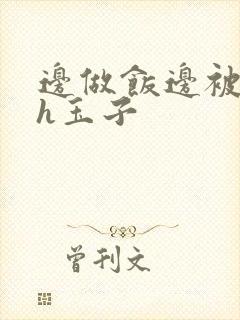 邊做飯邊被
h玉子
曾刊文